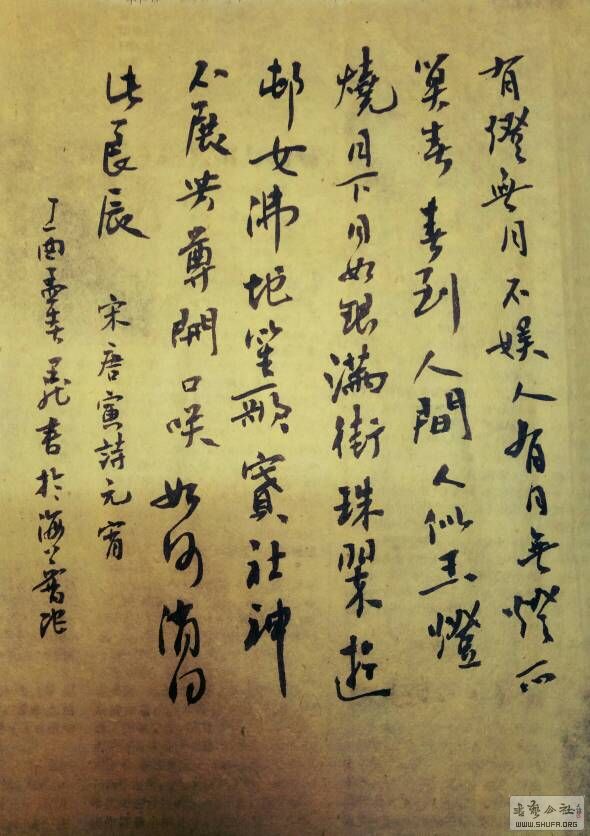 有燈無月不娛人有月無燈不
算春春到人間人似玉燈
燒月下月如銀滿街珠翠遊
邨女沸地笙歌賽社神
不展芳尊開口咲如何消得
此良辰 宋唐寅詩元宵
丁酉孟春書於海
書藝公社
WWW.SHUFA.ORG